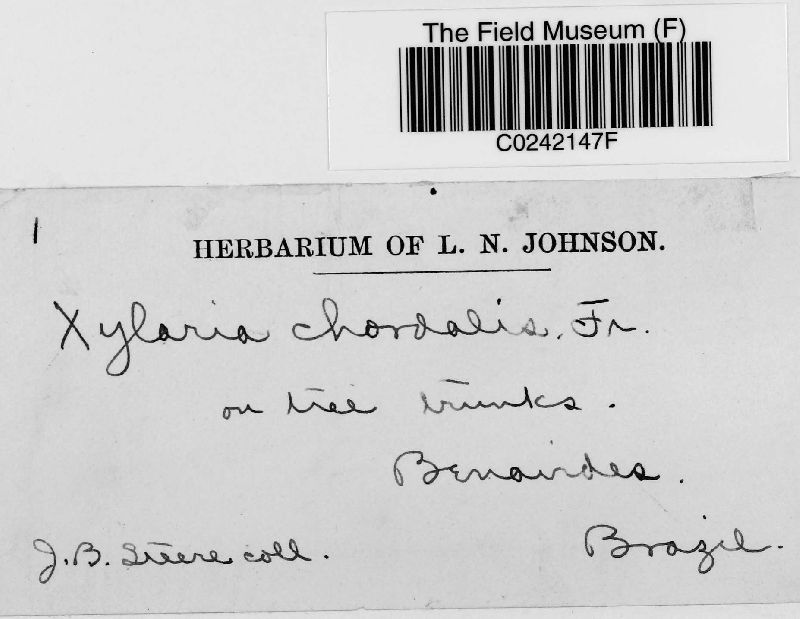 The Field Museum (F)
C0242147F
1
HERBARIUM OF L. N. JOHNSON.
Xylaria chordalis, Fr.
on tree trunks.
Benavides.
J. B. Steere coll.
Brazil.